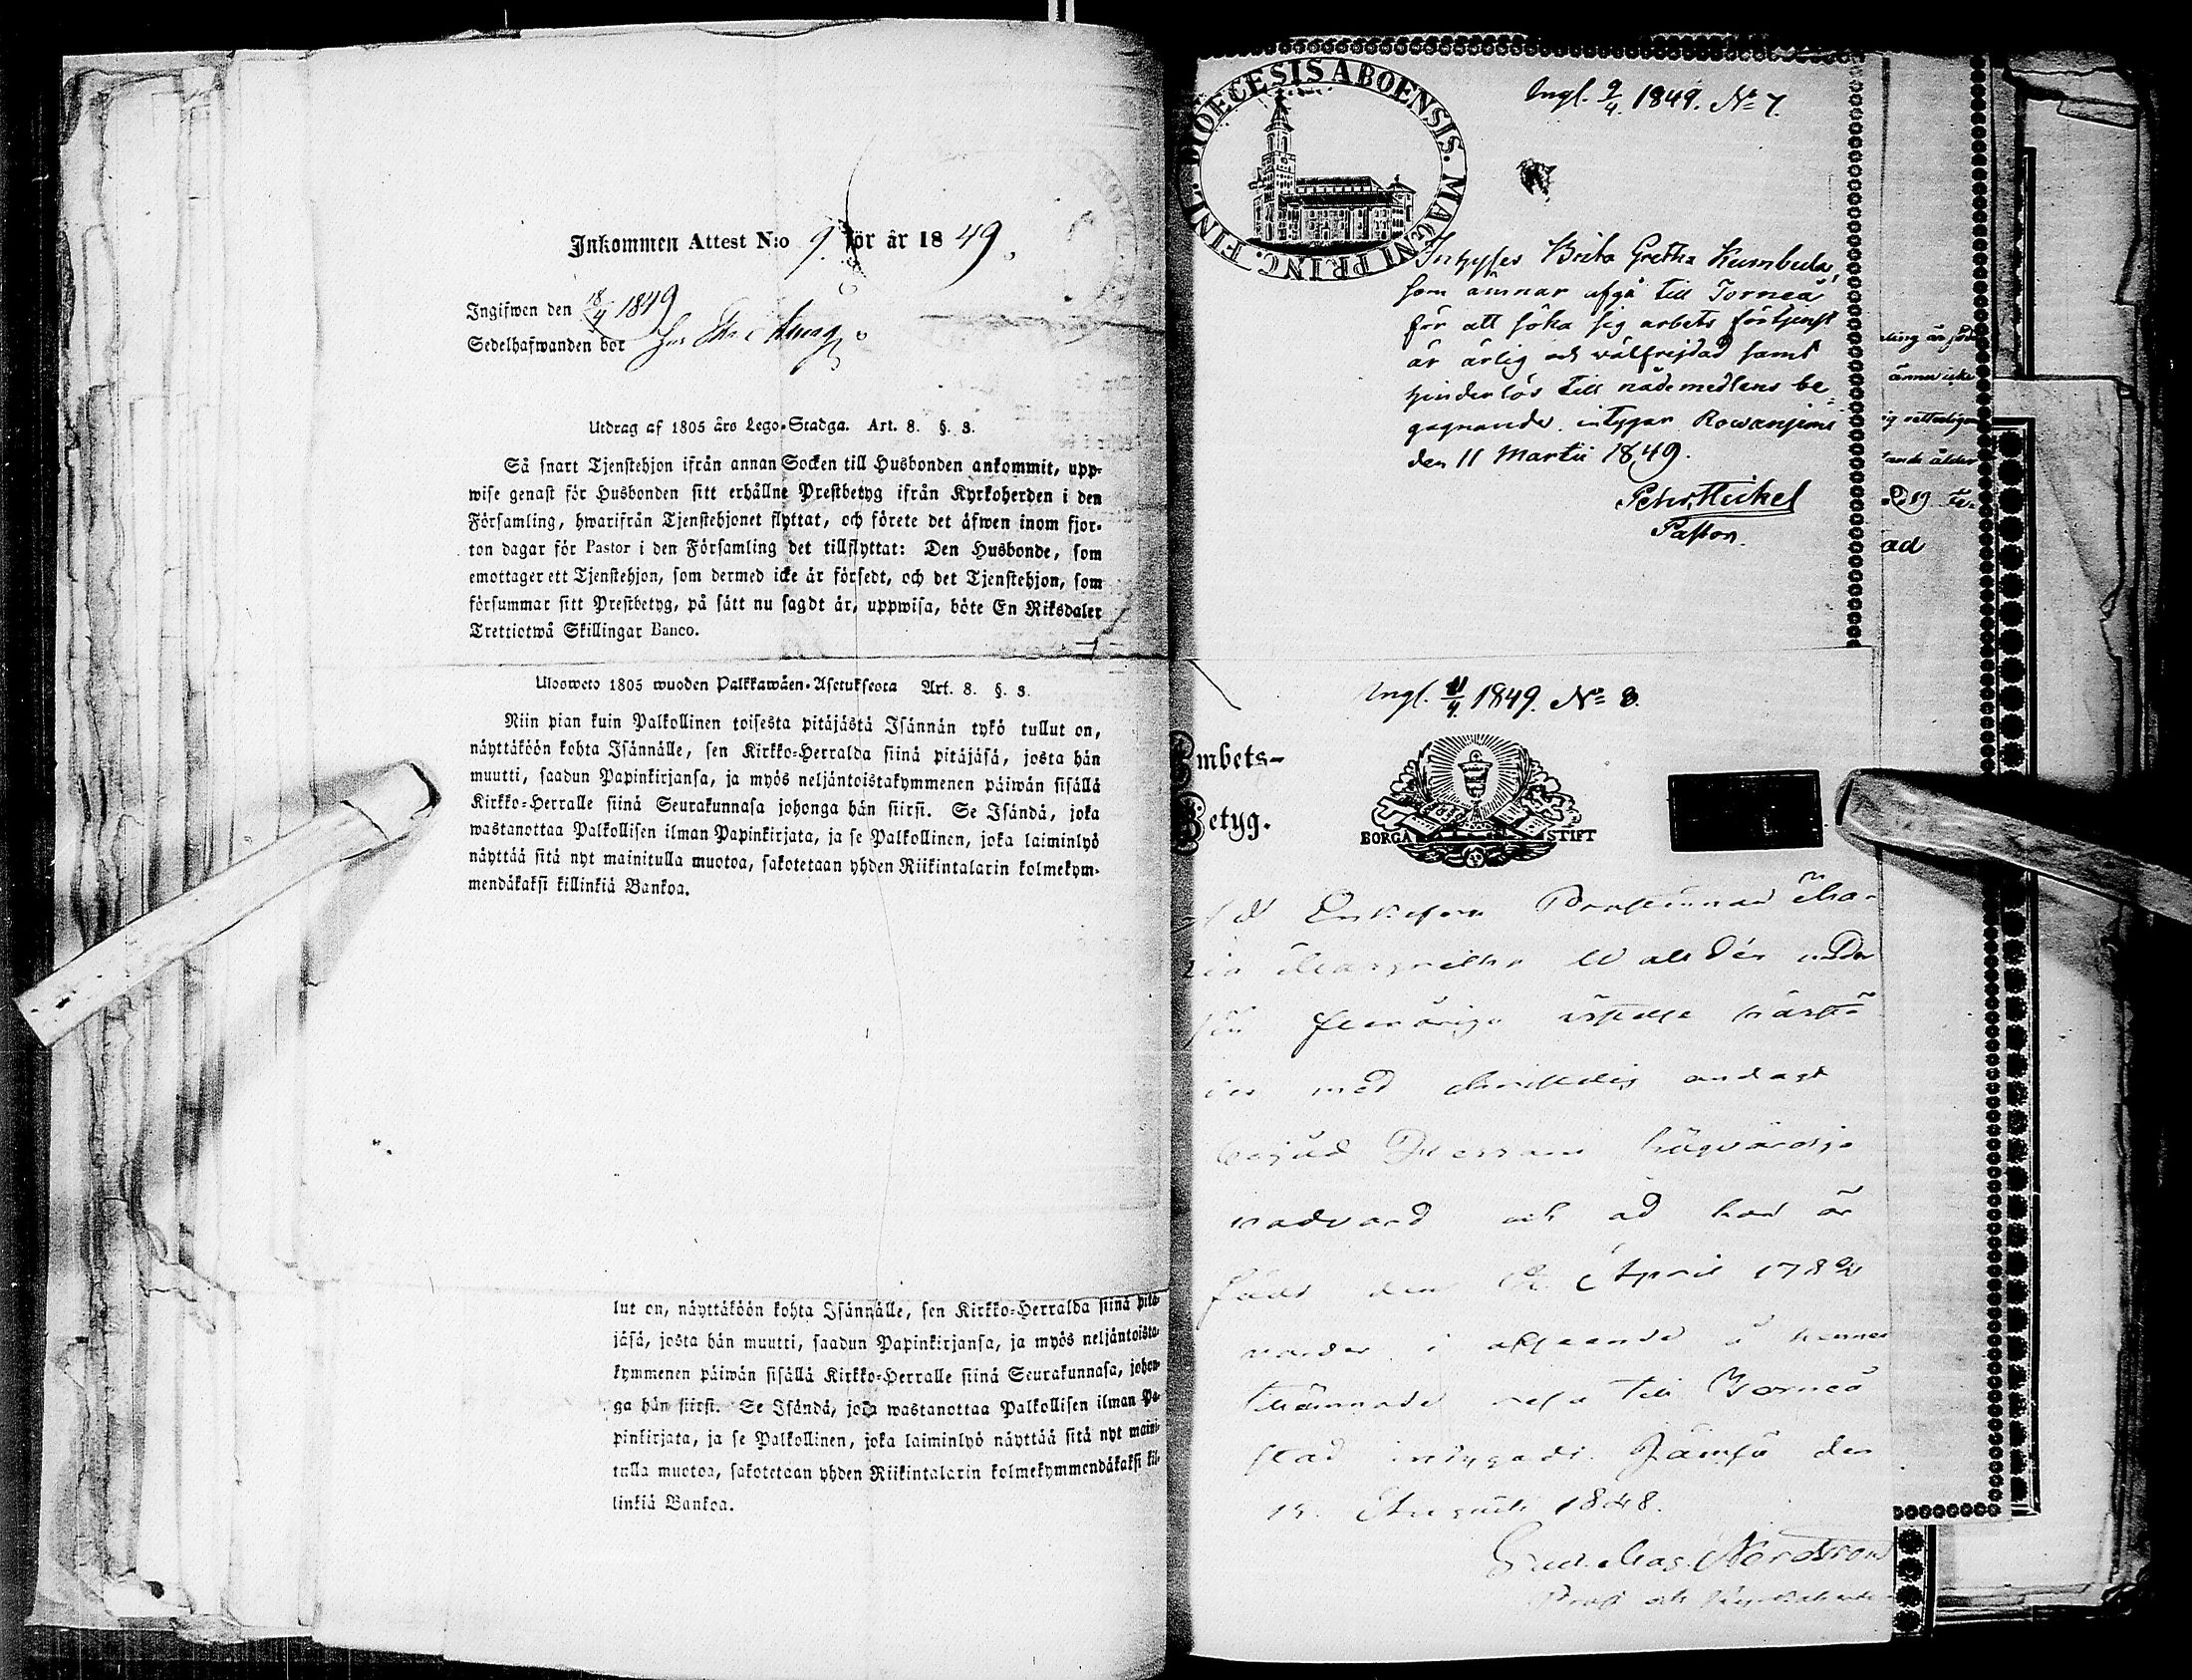 Inkommen Attest N:o 9. för år 1849.
Ingifwen den 18/4 1849
Sedelhafwanden bor hos
Utdrag af 1805 års Lego-Stadga. Art. 8. §. 3.
Så snart Tjenstehjon ifrån annan Socken till Husbonden ankommit, upp-
wise genast för Husbonden sitt erhållne Prestbetyg ifrån Kyrkoherden i den
Församling, hwarifrån Tjenstehjonet flyttat, och förete det äfwen inom fjor-
ton dagar för Pastor i den Församling det tillflyttat: Den Husbonde, som
emottager ett Tjenstehjon, som dermed icke är försedt, och det Tjenstehjon, som
försummar sitt Prestbetyg, på sätt nu sagdt är, uppwisa, böte En Riksdaler
Trettiotwå Skillingar Banco.
Ulosweto 1805 wuoden Palkkawäen-Asetuksesta Art. 8. §. 3.
Niin pian kuin Palkollinen toisesta pitäjästä Isännän tykö tullut on,
näyttäköön kohta Isännälle, sen Kirkko-Herralda siinä pitäjäsä, josta hän
muutti, saadun Papinkirjansa, ja myös neljäntoistakymmenen päiwän sisällä
Kirkko-Herralle siinä Seurakunnasa johonga hän siirsi. Se Isändä, joka
wastanottaa Palkollisen ilman Papinkirjata, ja se Palkollinen, joka laiminlyö
näyttää sitä nyt mainitulla muotoa, sakotetaan yhden Riikintalarin kolmekym-
mendäkaksi killinkiä Bankoa.
lut on, näyttäköön kohta Isännälle, sen Kirkko-Herralda siinä pitä-
jäsä, josta hän muutti, saadun Papinkirjansa, ja myös neljäntoista-
kymmenen päiwän sisällä Kirkko-Herralle siinä Seurakunnasa, johon-
ga hän siirsi. Se Isändä, joka wastanottaa Palkollisen ilman Pa-
pinkirjata, ja se Palkollinen, joka laiminlyö näyttää sitä nyt maini-
tulla muotoa, sakotetaan yhden Riikintalarin kolmekymmendäkaksi kil-
linkiä Bankoa.
DIOECESIS ABOENSIS. MAGNI PRINC. FINL.
Ingl. 9/4. 1849. No 7.
Intygas Brita Gretha Kumbula,
som ämnar afgå till Torneå
för att söka sig arbets förtjenst
är ärlig och wälfrejdad samt
hinderlös till nådemedlens be-
gagnande. intygar Rowanjemi
den 11 Martii 1849.
Petr. Heikel
Pastor.
ling är född
ännu icke
ad
Ingl. 11/4. 1849. No 8.
Embets-
Betyg.
BORGÅ STIFT
Enkefru Prostinnan Ma-
ria Margretha Walldén under
sin fleråriga wistelse härstä-
des med christelig andagt
begåd Herrans högvärdiga
nadvard och ad hon är
född den April 178
warder i afseende å hennes
tillämnade resa till Torneå
stad intygadt. Jämsä den
19. Augusti 1848.
Nordström
Prost och Kyrkoherde